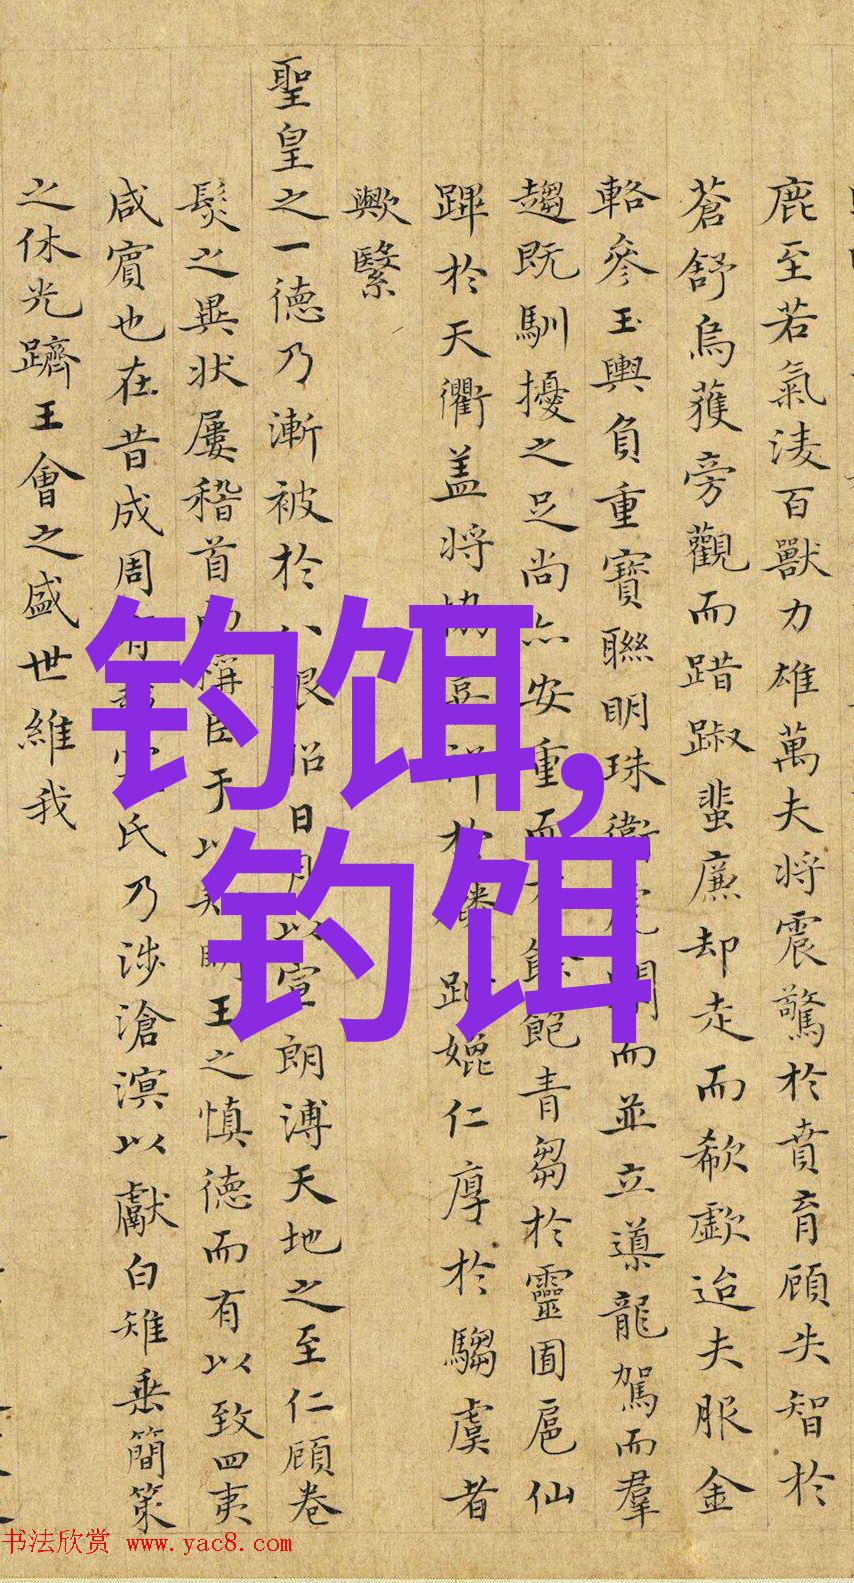 鹿至若氣凌百獸力雄萬夫将震驚於賁育顧失智於
蒼舒烏獲旁觀而踖踧蜚廉却走而欷歔迨夫服金
輅參玉輿負重寶聯明珠衛而並立導龍駕而羣
趨既馴擾之足尚亦安重而飽青芻於靈囿扈仙
蹕於天衢盖将協於趾媲仁厚於騶虞者
歟繄
聖皇之一徳乃漸被於日月以宣朗溥天地之至仁顧卷
髮之異状屢稽首稱臣于以明王之慎徳而有以致四夷
咸賓也在昔成周氏乃涉滄溟以獻白雉垂簡策
之休光躋王會之盛世維我
钓饵,
钓饵
书法欣赏 www.yac8.com